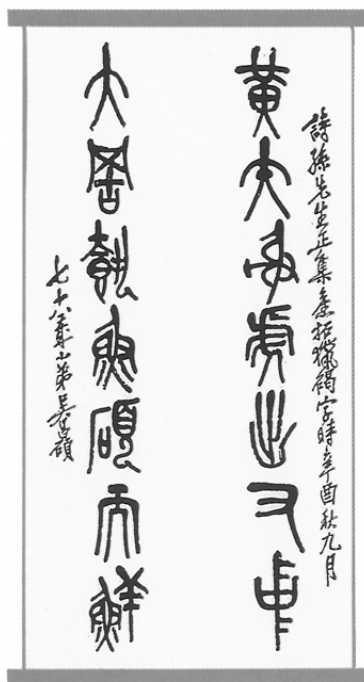 詩孫先生正集舊拓獵碣字時辛酉秋九月
黃出又中
大罟執魚碩而鮮
七十八叟小弟吳昌碩